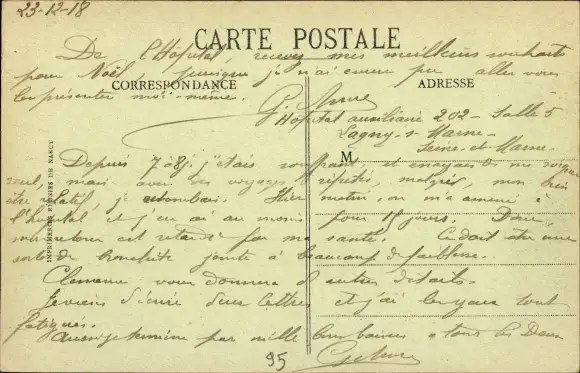 23-12-18
CARTE POSTALE
De l'Hôpital, recevez mes meilleurs souhaits
pour Noël, puisque je n'ai encore pu aller vous
les présenter moi-même.
CORRESPONDANCE
ADRESSE
G.
Hôpital auxiliaire 202 - Salle 5
Lagny-s-Marne-
Seine-et-Marne.
M
Depuis 7 à 8 j. j'étais souffrant et essayais de me
mais avec des voyages répétés, malgré mon bien
être relatif, je retombais. Hier matin, on m'a amené à
l'hôpital et j'en ai au moins pour 15 jours. Donc,
mon retour est retardé par ma santé. Ce doit être une
sorte de bronchite jointe à beaucoup de faiblesse.
Clemence vous donnera d'autres détails.
Je viens d'écrire deux lettres et j'ai les yeux tout
fatigués.
Aussi je termine par mille bons baisers à tous les Deux
95
IMPRIMERIES REUNIES DE NANCY